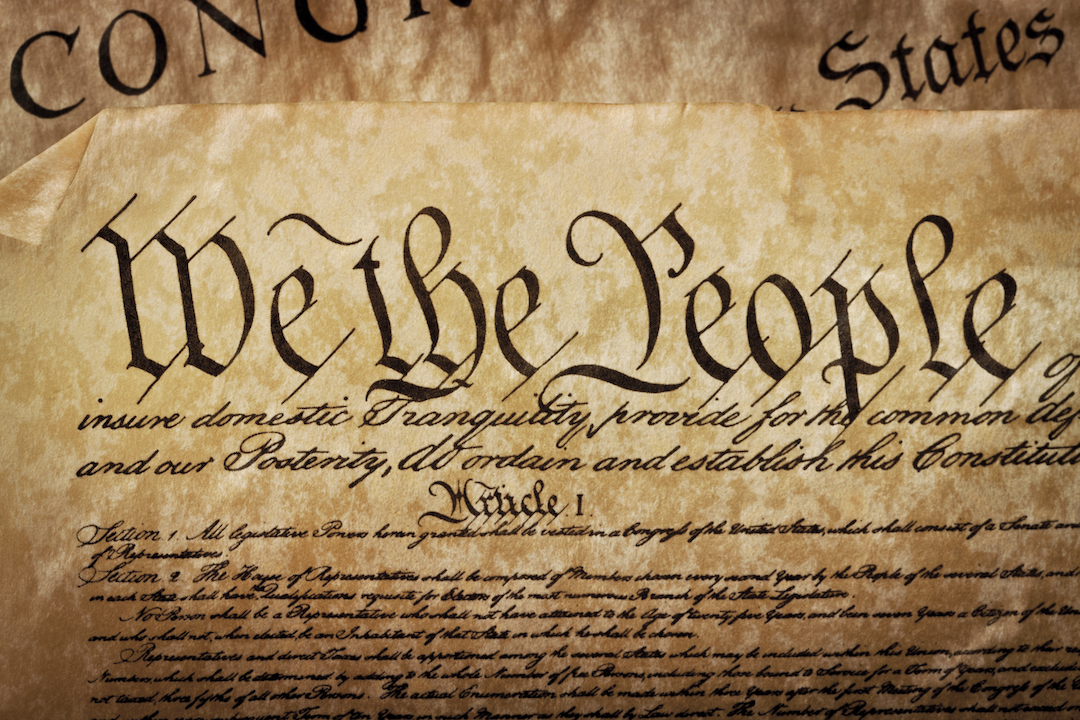 CONGR
States
We the People of
insure domestic Tranquility, provide for the common def
and our Posterity, do ordain and establish this Constituti
Article I.
Section 1. All legislative Powers herein granted shall be vested in a Congress of the United States, which shall consist of a Senate and
of Representatives.
Section 2. The House of Representatives shall be composed of Members chosen every second Year by the People of the several States, and
in each State shall have the Qualifications requisite for Electors of the most numerous Branch of the State Legislature.
No Person shall be a Representative who shall not have attained to the Age of twenty five Years, and been seven Years a Citizen of the Uni
and who shall not, when elected, be an Inhabitant of that State in which he shall be chosen.
Representatives and direct Taxes shall be apportioned among the several States which may be included within this Union, according to their re
Numbers, which shall be determined by adding to the whole Number of free Persons, including those bound to Service for a Term of Years, and excludin
not taxed, three fifths of all other Persons. The actual Enumeration shall be made within three Years after the first Meeting of the Congress of the
subsequent Term of ten Years, in such Manner as they shall by Law direct. The Number of Representatives shall not exceed